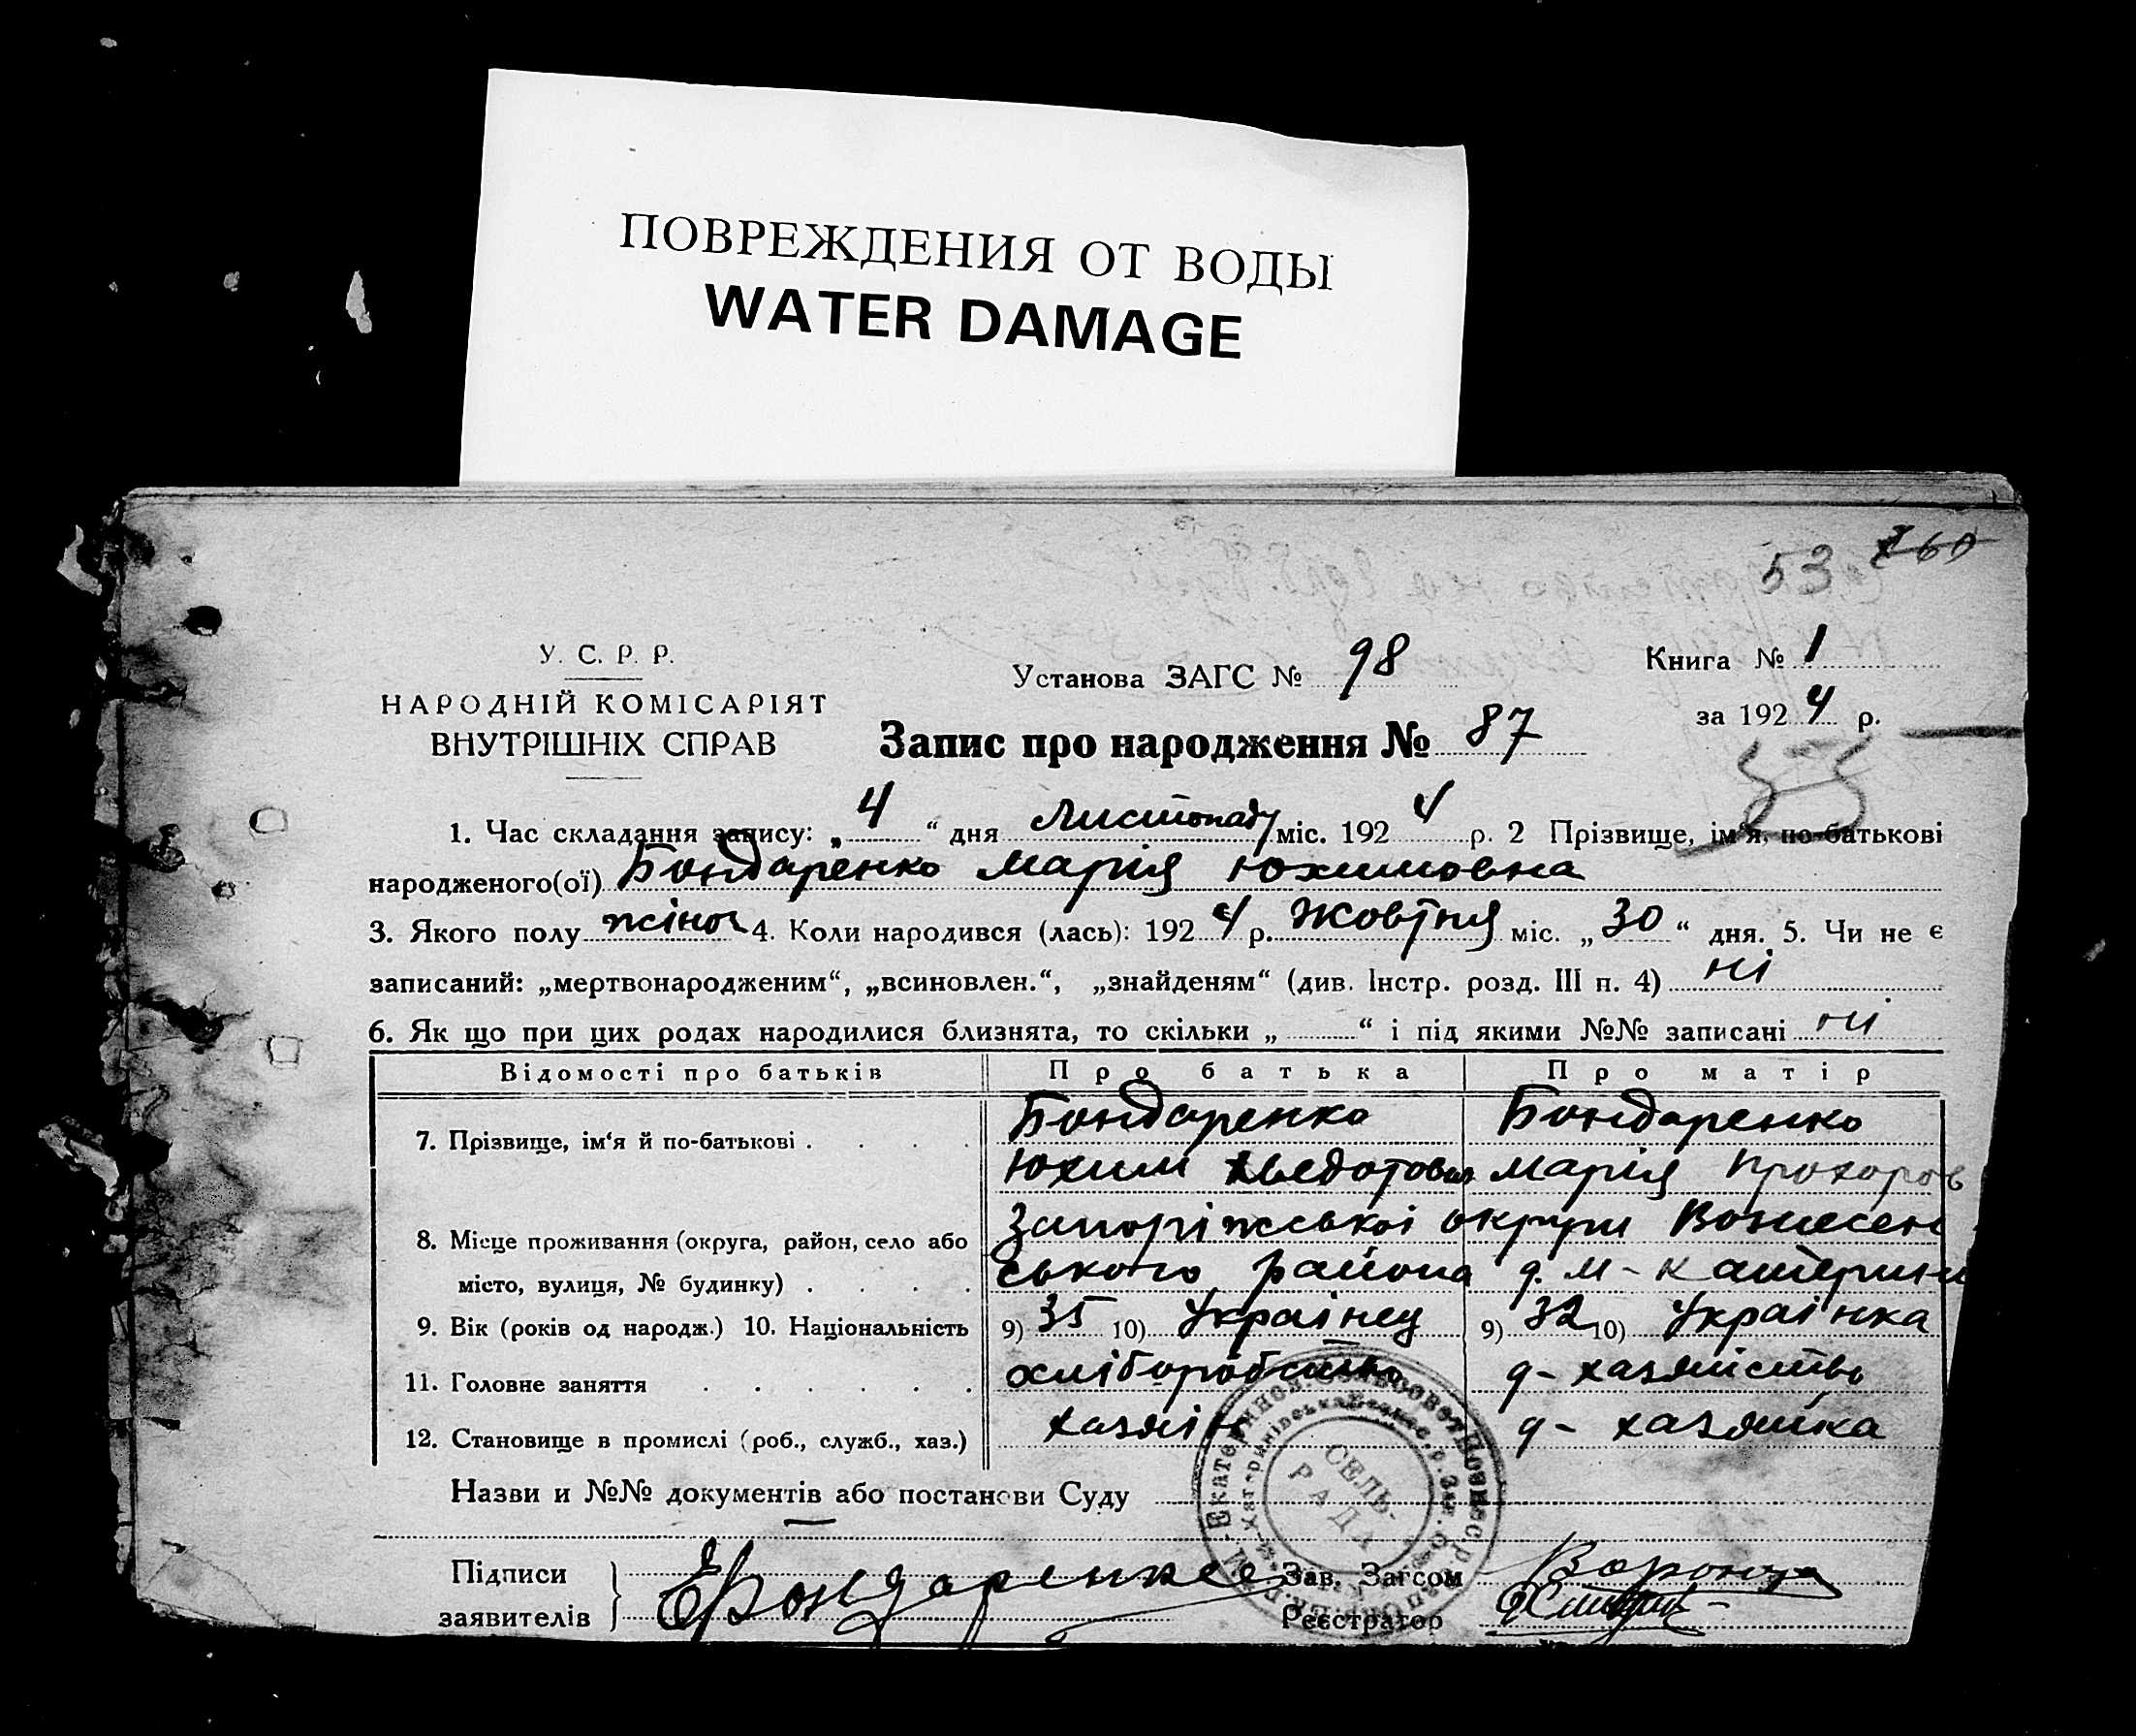 ПОВРЕЖДЕНИЯ ОТ ВОДЫ
WATER DAMAGE
53
У. С. Р. Р.
НАРОДНІЙ КОМІСАРІЯТ
ВНУТРІШНІХ СПРАВ
Установа ЗАГС № 98
Книга № 1
за 1924 р.
Запис про народження № 87
1. Час складання запису: „4“ дня Листопаду міс. 1924 р. 2 Прізвище, ім'я, по-батькові
народженого(ої) Бондаренко Марія Юхимовна
3. Якого полу жіноч 4. Коли народився (лась): 1924 р. Жовтня міс. „30“ дня. 5. Чи не є
записаний: „мертвонародженим“, „всиновлен.“, „знайденям“ (див. Інстр. розд. III п. 4) ні
6. Як що при цих родах народилися близнята, то скільки „ “ і під якими №№ записані ні
Відомості про батьків Про батька Про матір
7. Прізвище, ім'я й по-батькові . . . . Бондаренко Бондаренко
Юхим Хведотович Марія Прохоров
8. Місце проживання (округа, район, село або Запоріжської округи Вознесен
місто, вулиця, № будинку) . . . . ського района д. М-Катерин
9. Вік (років од народж.) 10. Національність 9) 35 10) Українец 9) 32 10) Українка
11. Головне заняття . . . . . . хліборобство д- хазяйство
12. Становище в промислі (роб., служб., хаз.) хазяін д- хазяйка
Назви и №№ документів або постанови Суду
СЕЛЬ-
РАДА
Підписи
заявителів
Бондаренко
Зав. Загсом
Реєстратор